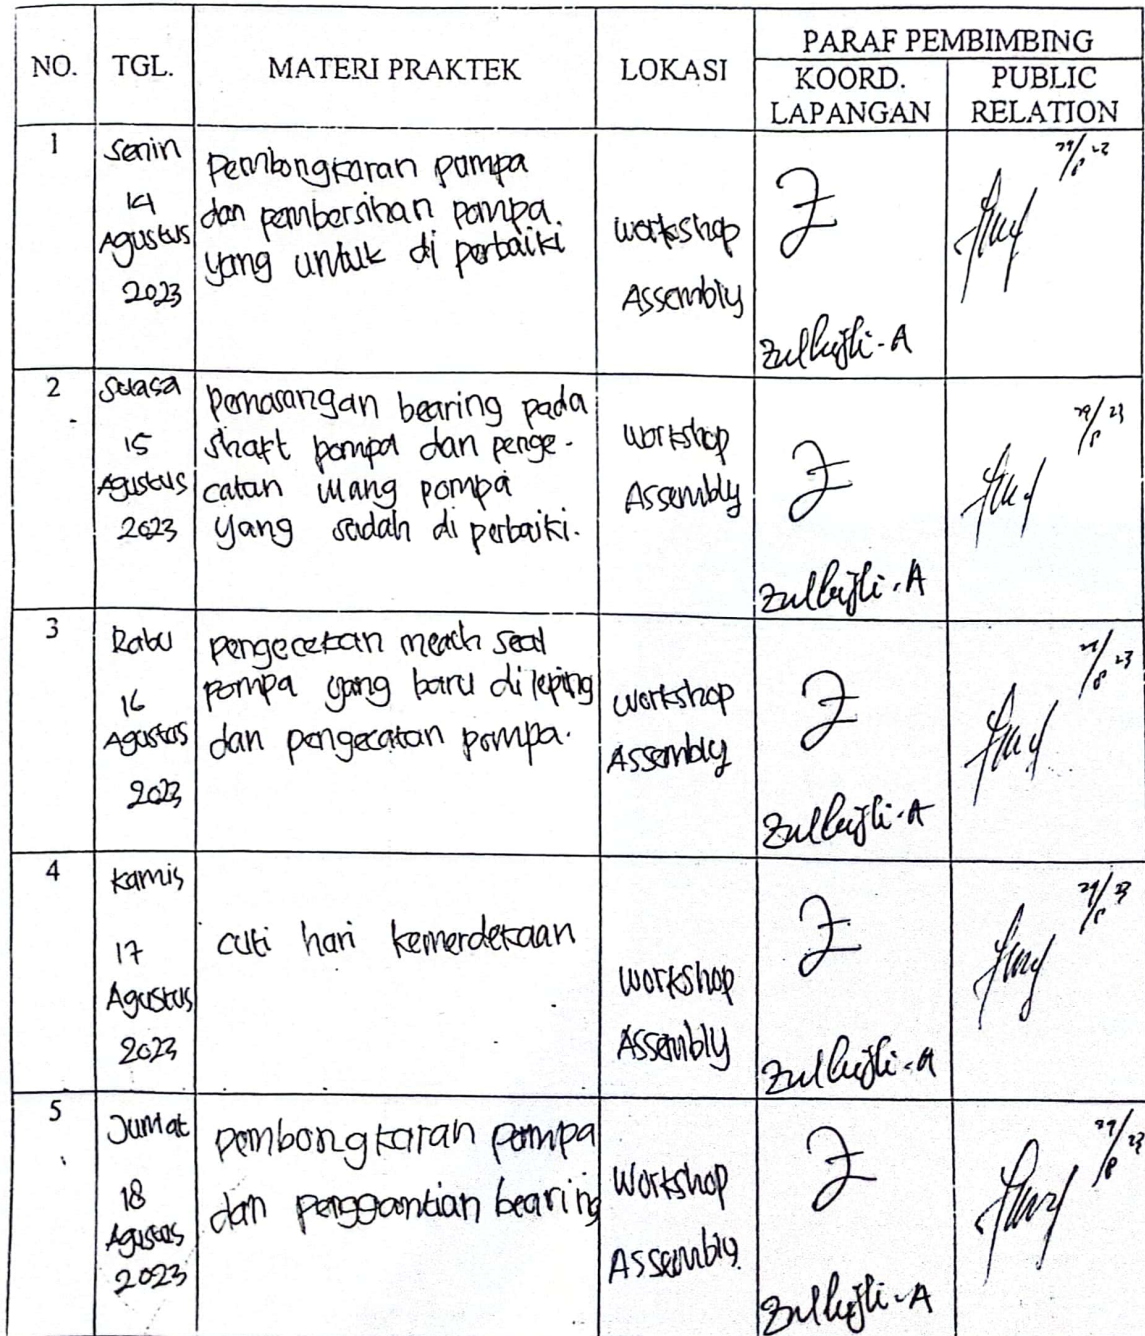 NO.
TGL.
MATERI PRAKTEK
LOKASI
PARAF PEMBIMBING
KOORD.
LAPANGAN
PUBLIC
RELATION
1
Senin
14
Agustus
2023
Pembongkaran pompa
dan pembersihan pompa.
yang untuk di perbaiki
workshop
Assembly
Zulkifli-A
2
Selasa
15
Agustus
2023
pemasangan bearing pada
shaft pompa dan penge-
catan ulang pompa
yang sudah di perbaiki.
workshop
Assembly
Zulkifli.A
29/8 23
3
Rabu
16
Agustus
2023
pengecekan meach seal
pompa yang baru di leping
dan pengecatan pompa.
workshop
Assembly
Zulkifli-A
4
Kamis
17
Agustus
2023
cuti hari kemerdekaan
workshop
Assembly
Zulkifli-A
5
Jumat
18
Agustus
2023
pembongkaran pompa
dan penggantian bearing
Workshop
Assembly
Zulkifli-A